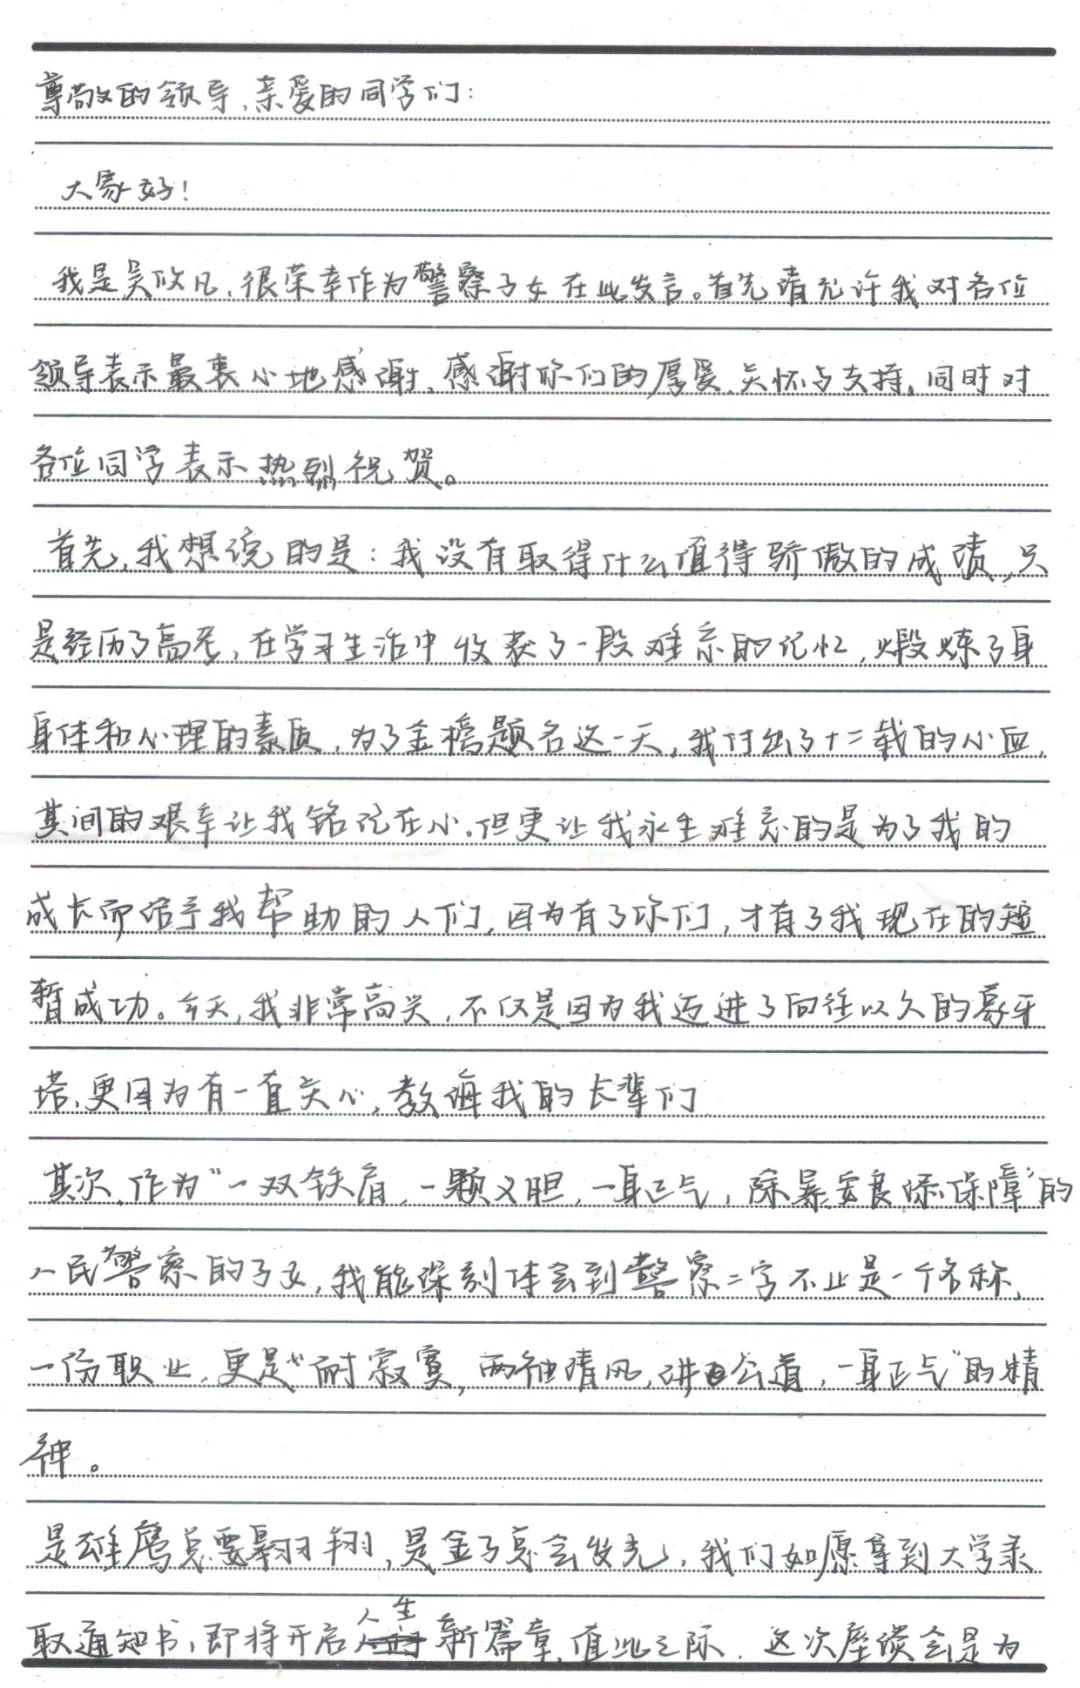 尊敬的领导,亲爱的同学们:
大家好!
我是吴欣凡,很荣幸作为警察子女在此发言。首先请允许我对各位
领导表示最衷心地感谢,感谢你们的厚爱、关怀与支持,同时对
各位同学表示热烈祝贺。
首先,我想说的是:我没有取得什么值得骄傲的成绩,只
是经历了高考,在学习生活中收获了一段难忘的记忆,煅炼了身
身体和心理的素质,为了金榜题名这一天,我付出了十二载的心血,
其间的艰辛让我铭记在心.但更让我永生难忘的是为了我的
成长而给予我帮助的人们,因为有了你们,才有了我现在的短
暂成功。今天,我非常高兴,不仅是因为我迈进了向往以久的象牙
塔,更因为有一直关心,教诲我的长辈们
其次,作为"一双铁肩,一颗义胆,一身正气,除暴安良保障"的
人民警察的子女,我能深刻体会到警察二字不止是一个名称,
一份职业,更是"耐寂寞,两袖清风,讲公道,一身正气"的精
神。
是雄鹰总要翱翔,是金子总会发光,我们如愿拿到大学录
取通知书,即将开启人生新篇章,值此之际,这次座谈会是为